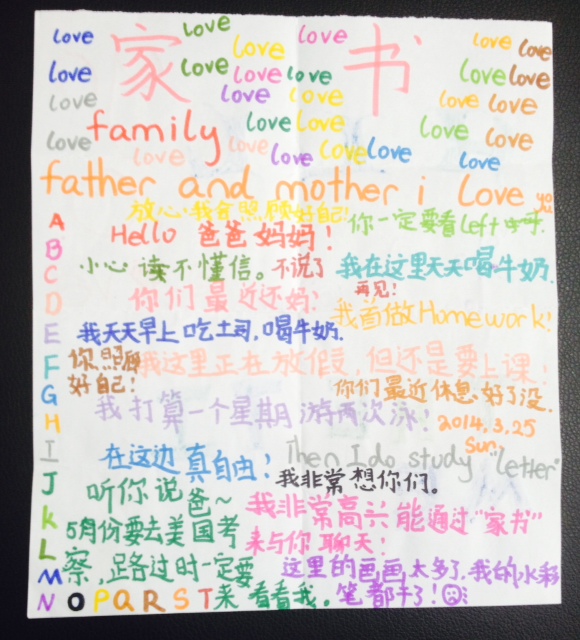 love love love love love love
家书
love love love love love love love
love love love love love
family
love love love love love
love love love love love love
father and mother i love you
放心!我会照顾好自己!
你一定要看left
A
Hello 爸爸妈妈!
B
小心读不懂信。不说了
再见!
我在这里天天喝牛奶.
C
你们最近还好?
D
我首做Homework!
E
我天天早上吃土司,喝牛奶.
F
你照顾
好自己!
我这里正在放假,但还是要上课!
G
你们最近休息好了没.
H
我打算一个星期游两次泳!
2014.3.25
Sun
I
在这边真自由!
Then I do study "letter"
我非常想你们。
J
听你说爸~
K
5月份要去美国考
L
察,足路过时一定要
M
来看看我。
我非常高兴能通过"家书"
来与你聊天!
这里的画画太多了.我的水彩
笔都干了!
N O P Q R S T